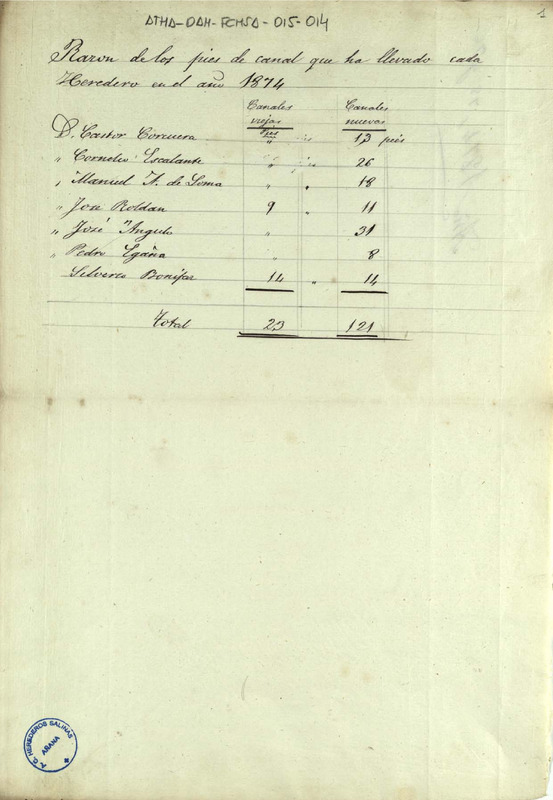 1
ATHA-DAH-FCHSA-015-014
Razon de los pies de canal que ha llevado cada
Heredero en el año 1874
Canales viejas Canales nuevas
pies
D. Castor Corcuera " 13 pies
" Cornelio Escalante " 26
" Manuel A. de Loma " " 18
" José Roldan 9 " 11
" José Mª Angulo " 31
" Pedro Egaña " 8
Silverio Bonifaz 14 " 14
Total 23 121
A. C. HEREDEROS SALINAS
ARANA